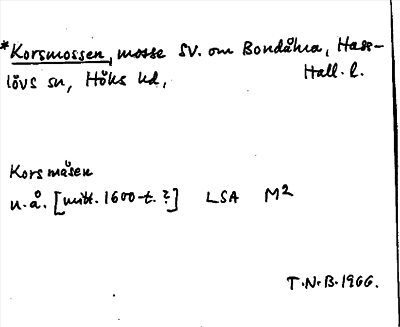 *Korsmossen, mosse SV. om Bondåhra, Hass-
lövs sn, Höks hd, Hall. l.
Kors måsen
u.å. [mitt. 1600-t.?] LSA M2
T.N.B. 1966.